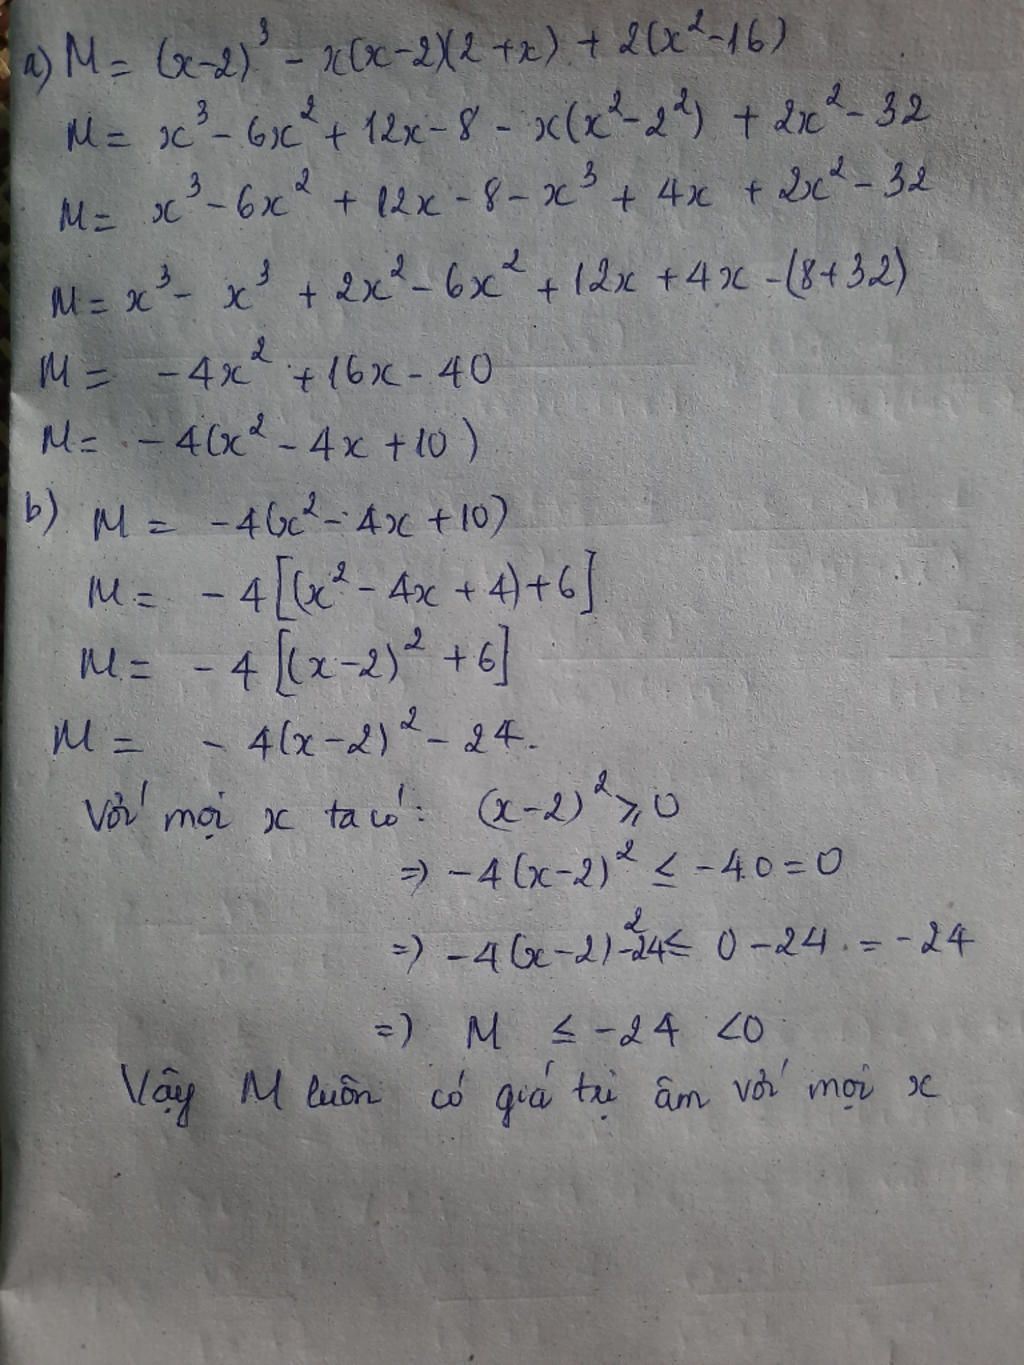 a) M = (x-2)³ - x(x-2)(2+x) + 2(x²-16)
M = x³ - 6x² + 12x - 8 - x(x²-2²) + 2x² - 32
M = x³ - 6x² + 12x - 8 - x³ + 4x + 2x² - 32
M = x³ - x³ + 2x² - 6x² + 12x + 4x - (8+32)
M = -4x² + 16x - 40
M = -4(x² - 4x + 10)
b) M = -4(x² - 4x + 10)
M = -4[(x² - 4x + 4) + 6]
M = -4[(x-2)² + 6]
M = -4(x-2)² - 24.
Với mọi x ta có: (x-2)² ⩾ 0
=> -4(x-2)² ≤ -4.0 = 0
=> -4(x-2)² - 24 ≤ 0 - 24 = -24
=> M ≤ -24 < 0
Vậy M luôn có giá trị âm với mọi x